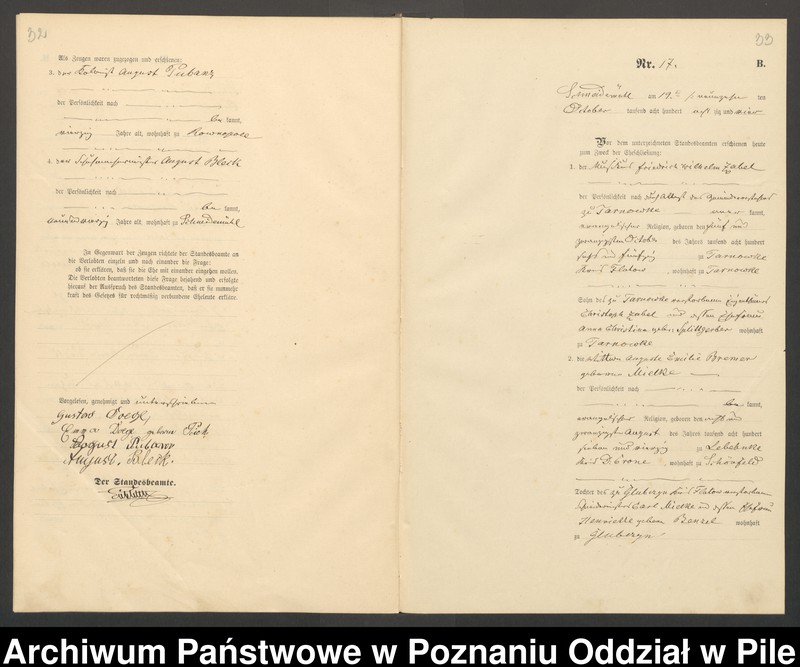 32
Als Zeugen waren zugezogen und erschienen:
3. der Kolonist August
der Persönlichkeit nach
be kannt,
vierzig Jahre alt, wohnhaft zu
4. der August Bleck
der Persönlichkeit nach
be kannt,
neunundvierzig Jahre alt, wohnhaft zu Schneidemühl
In Gegenwart der Zeugen richtete der Standesbeamte an
die Verlobten einzeln und nach einander die Frage:
ob sie erklären, daß sie die Ehe mit einander eingehen wollen.
Die Verlobten beantworteten diese Frage bejahend und erfolgte
hierauf der Ausspruch des Standesbeamten, daß er sie nunmehr
kraft des Gesetzes für rechtmäßig verbundene Eheleute erkläre.
Vorgelesen, genehmigt und unterschrieben
Gustav
geborene
August
August Bleck.
Der Standesbeamte.
33
Nr. 17. B.
Schneidemühl am 19 / neunzehn ten
October tausend acht hundert acht zig und vier
Vor dem unterzeichneten Standesbeamten erschienen heute
zum Zweck der Eheschließung:
1. der Musikus Friedrich Wilhelm Zabel
der Persönlichkeit nach des
zu Tarnowke kannt,
evangelischer Religion, geboren den fünf und
zwanzigsten October des Jahres tausend acht hundert
sechs und fünfzig zu Tarnowke
Kreis Flatow, wohnhaft zu Tarnowke
Sohn des zu Tarnowke verstorbenen
Christoph Zabel und dessen Ehefrau
Anna Christina geb. Splittgerber wohnhaft
zu Tarnowke
2. die Wittwe Auguste Emilie Bremer
geborene Mielke
der Persönlichkeit nach
be kannt,
evangelischer Religion, geboren den acht und
zwanzigsten August des Jahres tausend acht hundert
sieben und vierzig zu Lebehnke
Kreis D. Crone, wohnhaft zu Schönfeld
Tochter des zu Kreis Flatow verstorbenen
Carl Mielke und dessen Ehefrau
Henriette geborene Benzel wohnhaft
zu
Archiwum Państwowe w Poznaniu Oddział w Pile